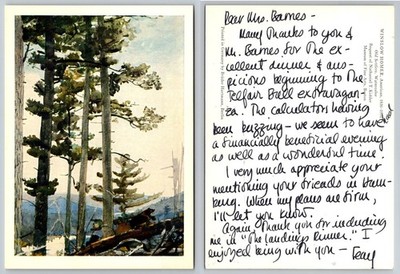 Dear Mrs. Barnes -
Many thanks to you &
Mr. Barnes for the ex-
cellent dinner & aus-
picious beginning to the
Telfair Ball extravagan-
za. The calculators having
been buzzing - we seem to have
a financially beneficial evening
as well as a wonderful time.
I very much appreciate your
mentioning your friends in
When my plans are firm,
I'll let you know.
Again, thank you for including
me in "The Landings Dinner." I
enjoyed being with you -
WINSLOW HOMER, American, 1836-1910
Old Settlers, Watercolor
Bequest of Nathaniel T. Kidder
Museum of Fine Arts, Boston